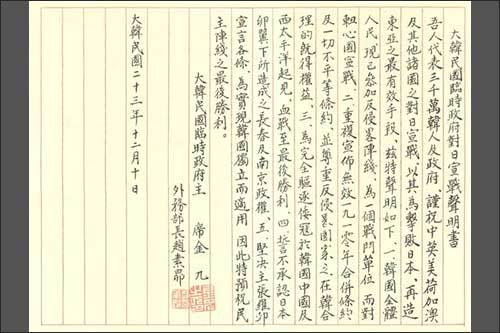 大韓民國臨時政府對日宣戰聲明書
吾人代表三千萬韓人及政府、謹祝中英美荷加澳
及其他諸國之對日宣戰、以其為擊敗日本、再造
東亞之最有效手段、茲特聲明如下、一、韓國全體
人民、現已參加反侵畧陣綫、為一個戰鬥單位、而對
軸心國宣戰、二、重複宣佈無效一九一〇年合併條約、
及一切不平等條約、並尊重反侵畧國家之、在韓合
理的既得權益、三、為完全驅逐倭寇於韓國中國及
西太平洋起見、血戰至最後勝利、四、誓不承認日本
卵翼下所造成之長春及南京政權、五、堅決主張羅邱
宣言各條、為實現韓國獨立而適用 因此特預祝民
主陣綫之最後勝利。
大韓民國臨時政府主 席金 九
外務部長趙素昂
大韓民國二十三年十二月十日